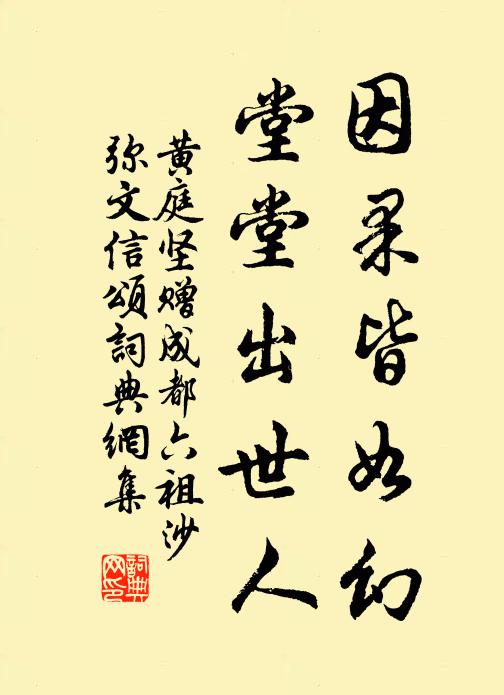 因果皆如幻
堂堂出世人
黄庭坚赠成都六祖沙
弥文信頌詞典網集
詞典
网印